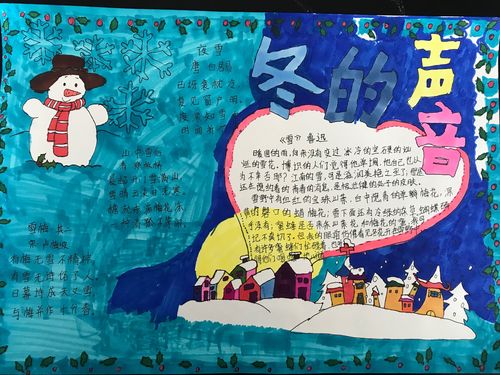 冬的声音
夜雪
唐 白居易
已讶衾枕冷,
复见窗户明。
夜深知雪重,
山中雪后
清 郑板桥
晨起开门雪满山,
雪晴云淡日光寒。
檐流未滴梅花冻,
一种清孤不等闲。
雪梅 其二
宋 卢梅坡
有梅无雪不精神
有雪无诗俗了人
日暮诗成天又雪
与梅并作十分春
《雪》 鲁迅
暖国的雨,向来没有变过冰冷的坚硬的灿
烂的雪花。博识的人们觉得他单调,他自己也以
为不幸否耶?江南的雪,可是滋润美艳之至了;那是
还在隐约着的青春的消息,是极壮健的处子的皮肤。
雪野中有血红的宝珠山茶,白中隐青的单瓣梅花,深
黄的磬口的蜡梅花;雪下面还有冷绿的杂草。蝴蝶确
乎没有;蜜蜂是否来采山茶花和梅花的蜜,我可
记不真切了。但我的眼前仿佛看见冬花开在雪野中,
有许多蜜蜂们忙碌地